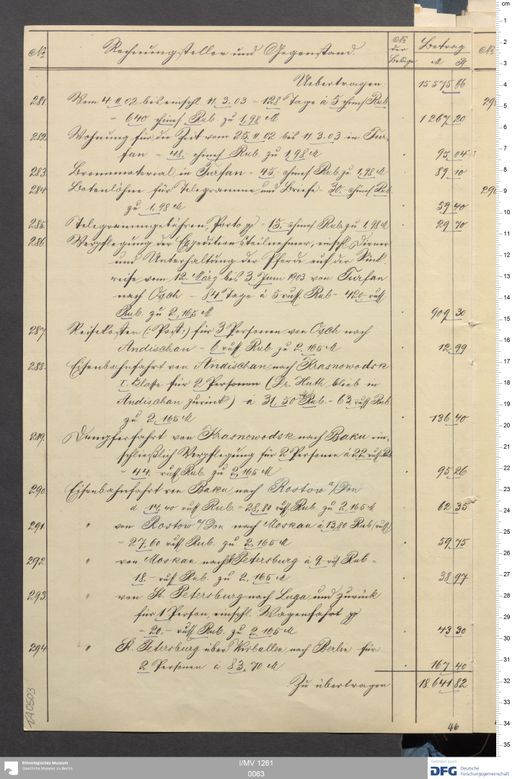 No. Rechnungssteller und Gegenstand. No. der Beläge Betrag M. Pf.
Uebertragen 15 575 66
281. Vom 4.11.02 bis einschl. 11.3.03 - 128 Tage à 5 chines. Rub.
- 640 chines. Rub. zu 1,98 M 1 267 20
282. Wohnung für die Zeit vom 25.11.02 bis 11.3.03 in Tur-
fan - 48. chines. Rub. zu 1,98 M 95 04
283. Brennmaterial in Turfan - 45. chines. Rub. zu 1,98 M 89 10
284. Botenlöhne für Telegramme und Briefe - 30. chines. Rub.
zu 1,98 M 59 40
285. Telegrammgebühren, Porto pp - 15. chines. Rub. zu 1,98 M 29 70
286. Verpflegung der Expeditionsteilnehmer, einschl. Diener
und Unterhaltung der Pferde auf der Rück
reise vom 12. März bis 3. Juni 1903 von Turfan
nach Osch - 84 Tage à 5 russ. Rub. - 420 russ.
Rub. zu 2,165 M 909 30
287. Reisekosten (: Post :) für 3 Personen von Osch nach
Andischan - 6 russ. Rub. zu 2,165 M 12 99
288. Eisenbahnfahrt von Andischan nach Krasnowodsk
I. Klasse für 2 Personen (Dr. Huth blieb in
Andischan zurück) à 31,50 Rub. - 63 russ. Rub.
zu 2,165 M 136 40
289. Dampferfahrt von Krasnowodsk nach Baku ein-
schließlich Verpflegung für 2 Personen à 22 russ. Rub.
- 44. russ. Rub. zu 2,165 M 95 26
290. Eisenbahnfahrt von Baku nach Rostow a/Don
à 14,40 russ. Rub. - 28,80 russ. Rub. zu 2,165 M 62 35
291. " von Rostow a/Don nach Moskau à 13,80 Rub. russ.
- 27,60 russ. Rub. zu 2,165 M 59 75
292. " von Moskau nach St. Petersburg à 9. russ. Rub. -
18. - russ. Rub. zu 2,165 M 38 97
293. " von St. Petersburg nach Luga und zurück
für 1 Person einschl. Wagenfahrt pp
- 20. - russ. Rub. zu 2,165 M 43 30
294. " St. Petersburg über Wirballen nach Berlin für
2 Personen à 83,70 M 167 40
Zu übertragen 18 641 82
46
I/MV 1261
0063
Ethnologisches Museum
Staatliche Museen zu Berlin
DFG Deutsche
Forschungsgemeinschaft